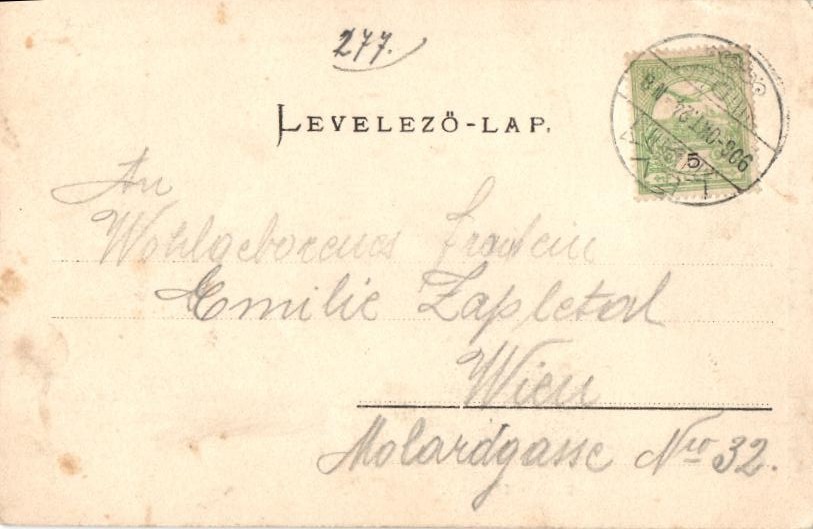 277.
LEVELEZŐ-LAP.
906 OKT. 22.
5
An
Wohlgeborenes Fraulein
Emilie Zapletal
Wien
Molardgasse Nro 32.